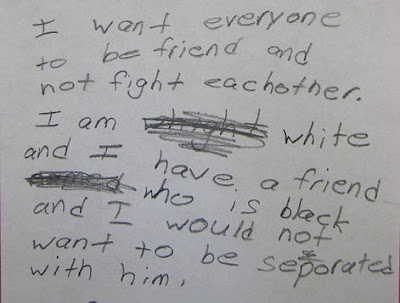 I want everyone
to be friend and
not fight eachother.
I am white
and I have a friend
who is black
and I would not
want to be seporated
with him.